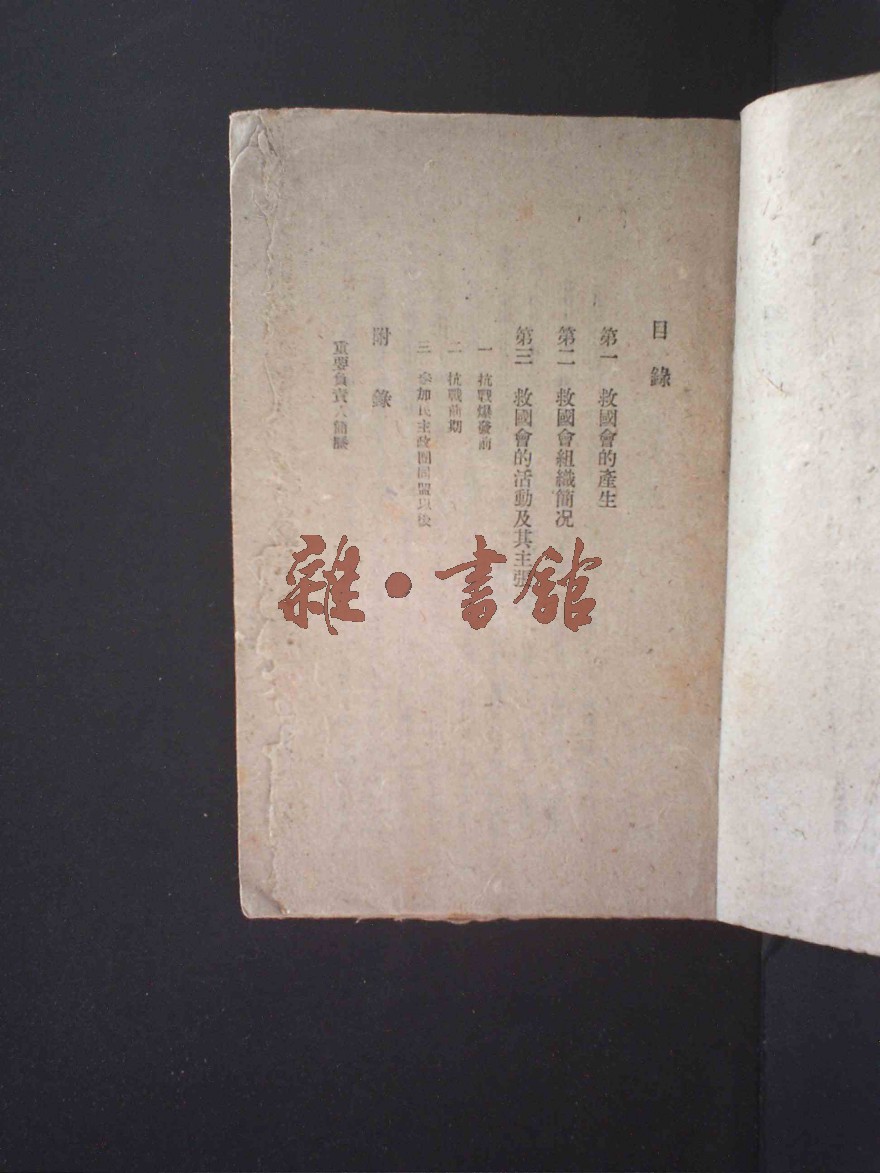 目錄
第一　救國會的產生
第二　救國會組織簡况
第三　救國會的活動及其主張
一　抗戰爆發前
二　抗戰前期
三　參加民主政團同盟以後
附錄
重要負責人簡歷
雜・書館